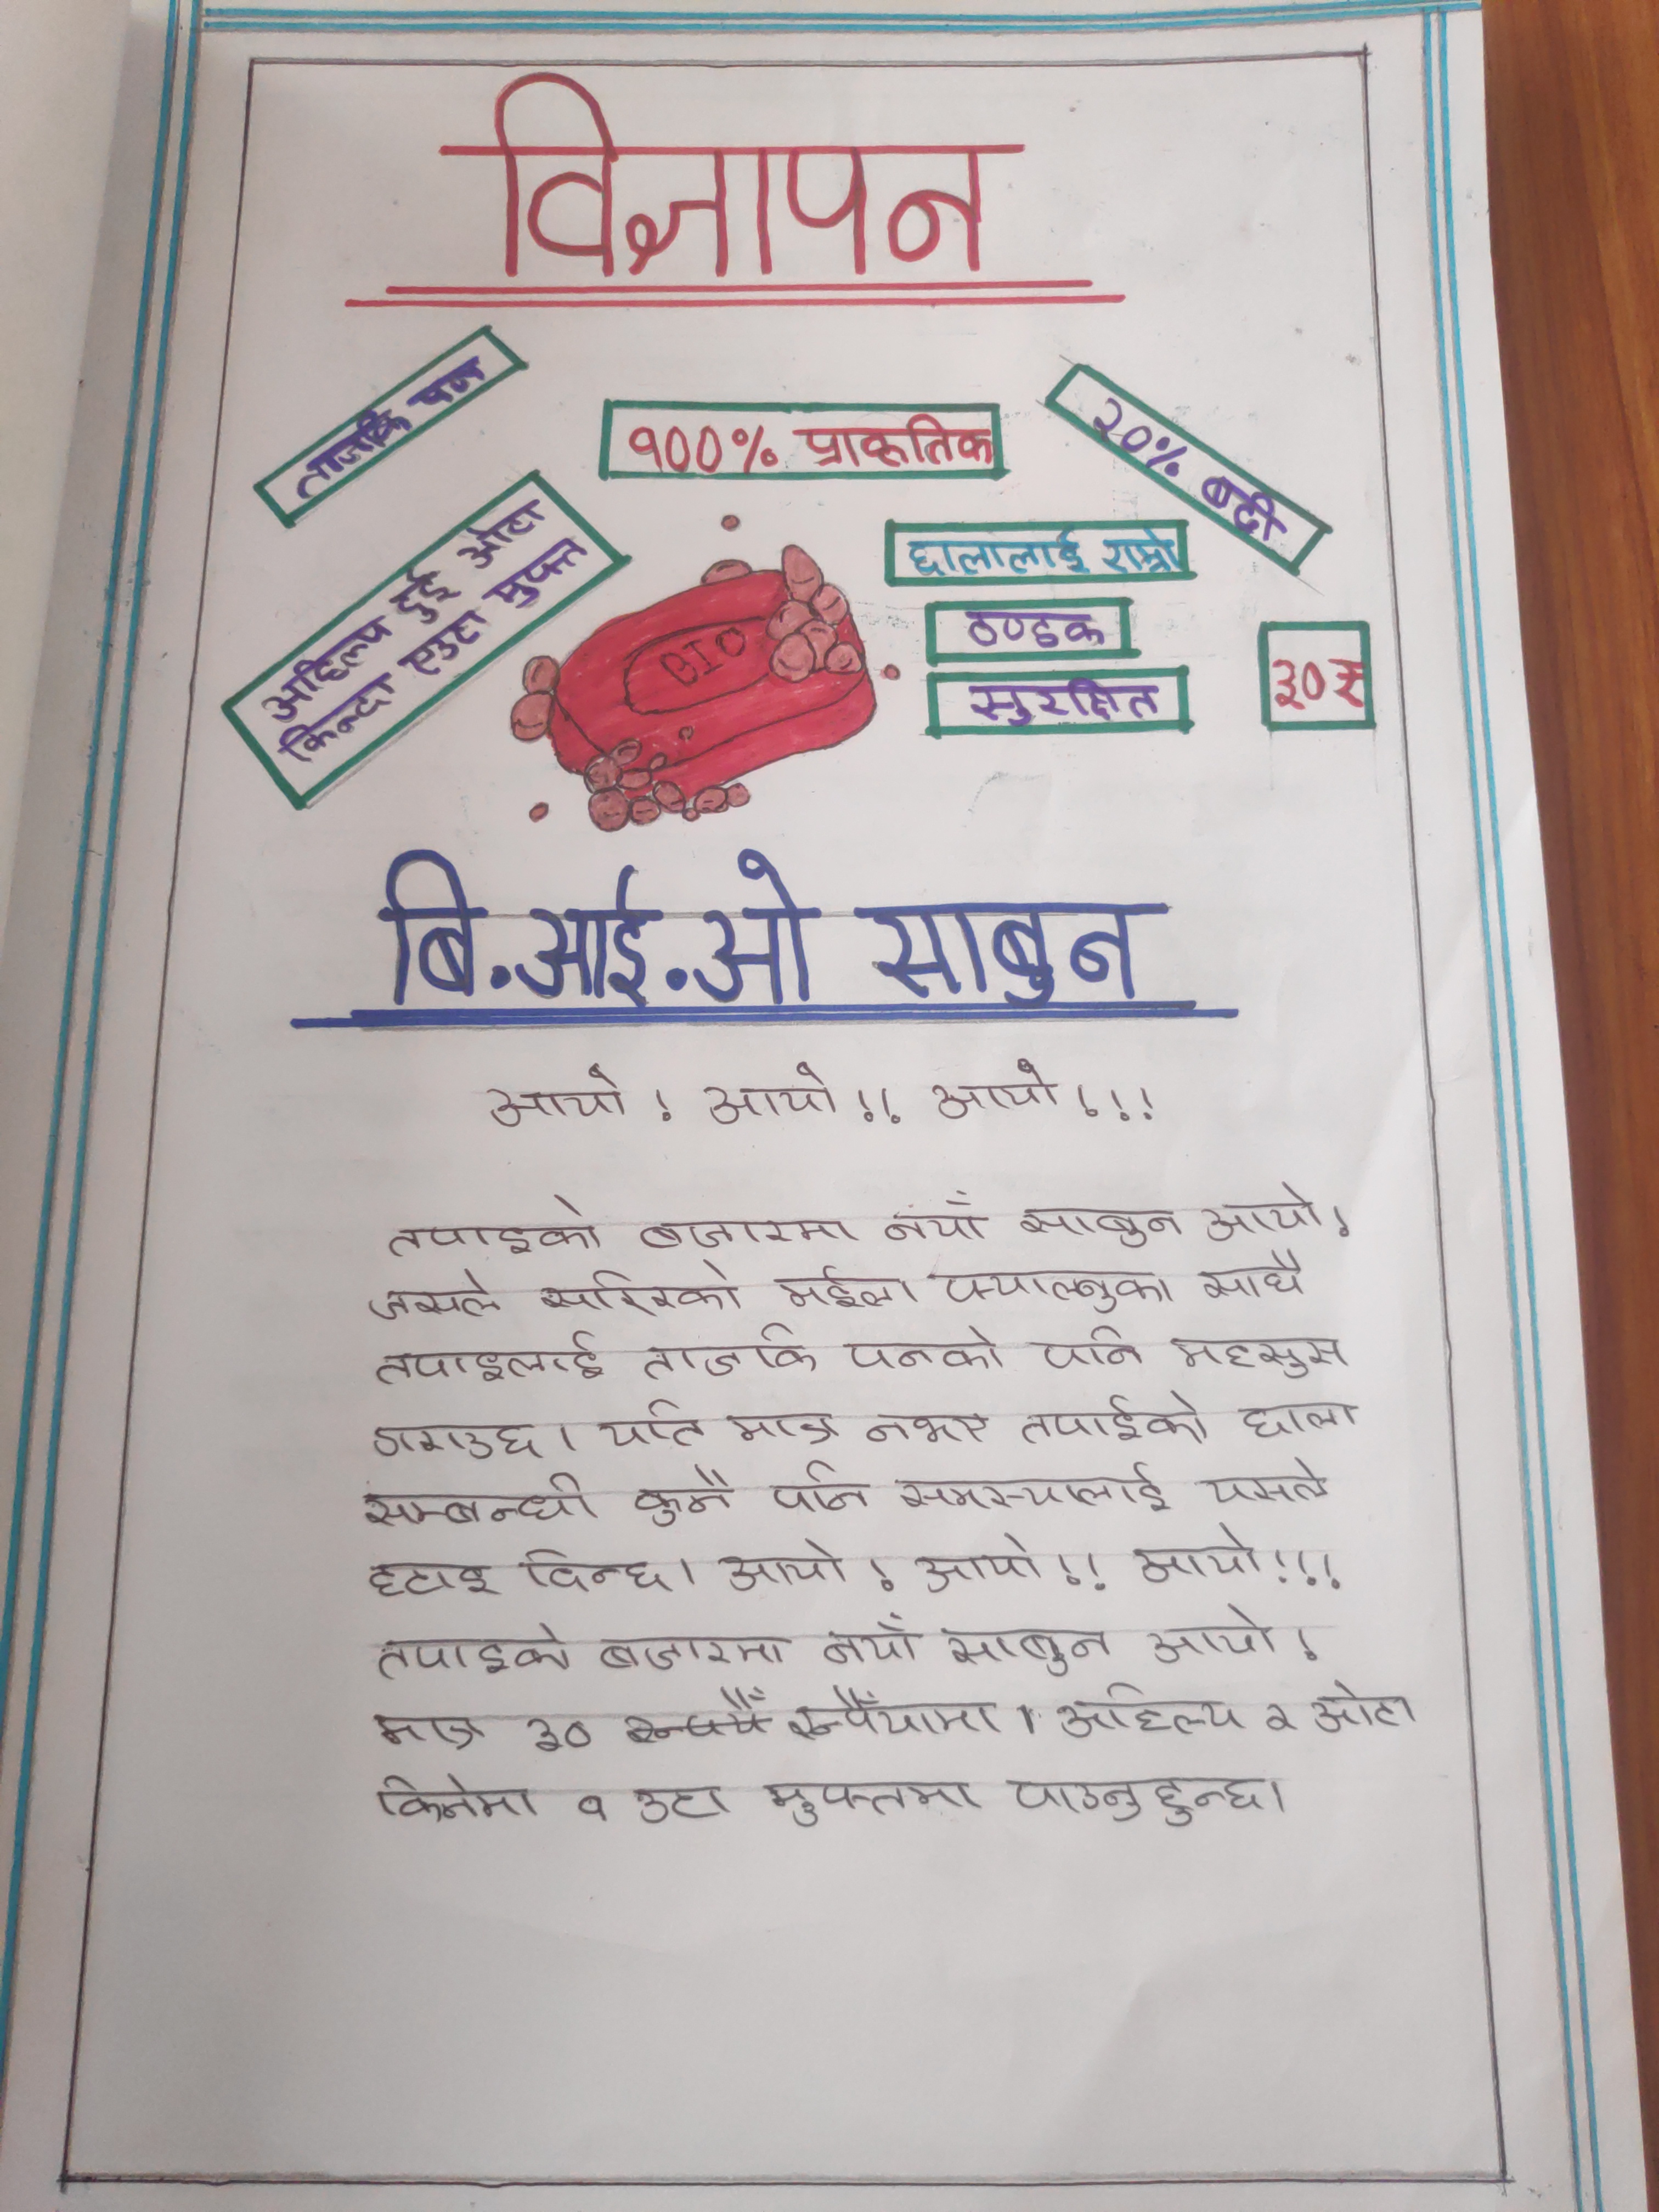 विज्ञापन
ताजकि पन
१००% प्राकृतिक
२०% बढी
अहिल्य दुई ओटा
किन्दा एउटा मुफ्त
छालालाई राम्रो
ठण्डक
सुरक्षित
३०₹
BIO
बि.आई.ओ साबुन
आयो! आयो!! आयो!!!
तपाइको बजारमा नयाँ साबुन आयो!
जसले सरिरको मईला फ्याल्नुका साथै
तपाइलाई ताजकि पनको पनि महसुस
गराउछ। यति मात्र नभए तपाईको छाला
सम्बन्धी कुनै पनि समस्यालाई यसले
हटाइ दिन्छ। आयो! आयो!! आयो!!!
तपाइको बजारमा नयाँ साबुन आयो!
मात्र ३० रूपैँयामा। अहिल्य २ ओटा
किनेमा १ उटा मुफ्तमा पाउनुहुन्छ।